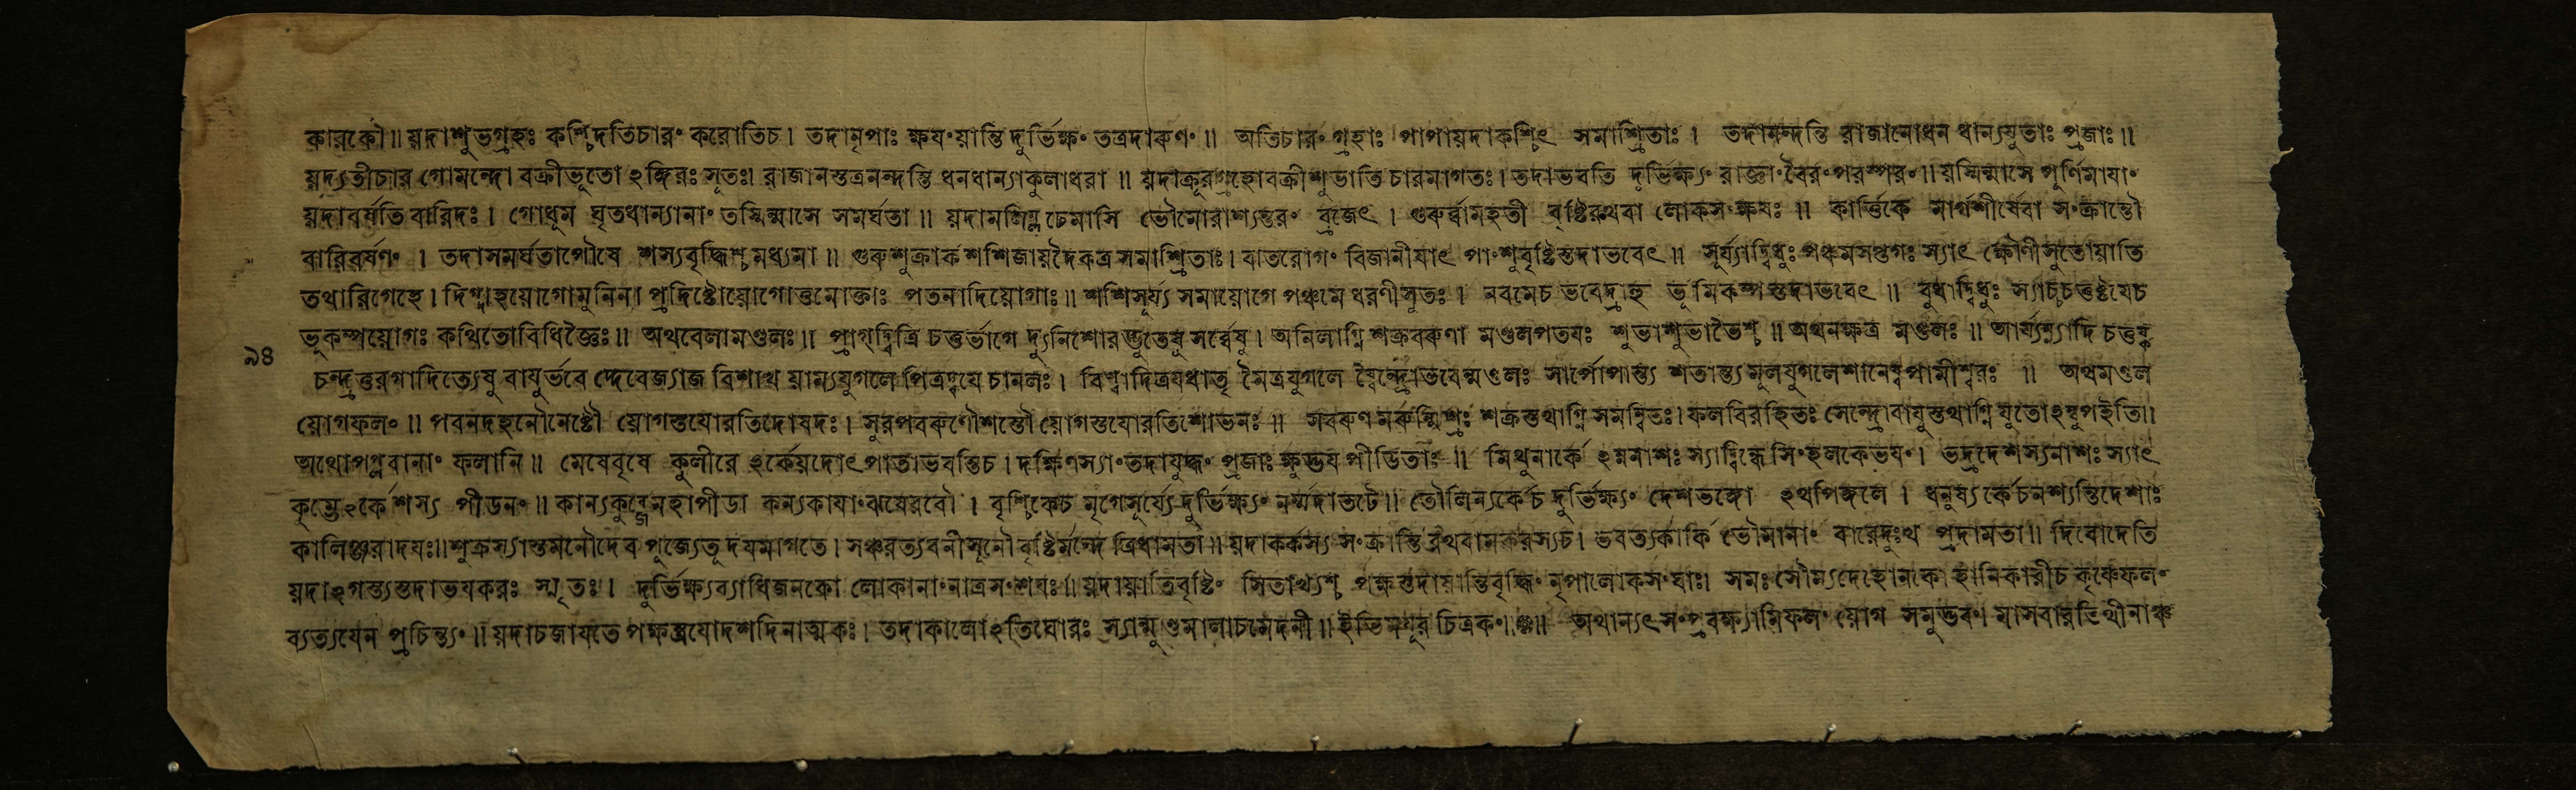 কারকৌ॥ য়দাশুভগ্রহঃ কশ্চিদতিচারং করোতিচ। তদানৃপাঃ ক্ষযংয়ান্তি দুর্ভিক্ষং তত্রদারুণং॥ অতিচারং গ্রহাঃ পাপায়দাকশ্চিৎ সমাশ্রিতাঃ। তদানন্দন্তি রাজানোধন ধান্যযুতাঃ প্রজাঃ॥
য়দ্যতীচার গোমন্দো বক্রীভূতো ঽঙ্গিরঃ সূতঃ। রাজানস্তত্রনন্দন্তি ধনধান্যাকুলাধরা॥ য়দাক্রূরগ্রহোবক্রীশুভাতি চারমাগতঃ। তদাভবতি দুর্ভিক্ষ্যং রাজ্ঞাংবৈরংপরস্পরং॥ য়স্মিন্মাসে পূর্ণিমাযাং
য়দাবর্ষতি বারিদঃ। গোধূম ঘৃতধান্যানাং তস্মিন্মাসে সমর্ঘতা॥ য়দামলিম্লুচেমাসি ভৌমোরাশ্যন্তরং ব্রজেৎ। গুরুর্ব্বামহতী বৃষ্টিরথবা লোকসংক্ষযঃ॥ কার্ত্তিকে মার্গশীর্ষেবা সংক্রান্তৌ
বারিবর্ষণং। তদাসমর্ঘতাপৌষে শস্যবৃদ্ধিশ্চমধ্যমা॥ গুরুশুক্রার্কশশিজায়দৈকত্র সমাশ্রিতাঃ। বাতরোগং বিজানীযাৎ পাংশুবৃষ্টিস্তদাভবেৎ॥ সূর্য্যাদ্বিধুঃ পঞ্চমসপ্তগঃ স্যাৎ ক্ষৌণীসুতোয়াতি
তথারিগেহে। দিগ্দাহয়োগোমুনিনা প্রদিষ্টোয়োগোত্তমোক্তাঃ পতনাদিয়োগাঃ॥ শশিসূর্য্য সমায়োগে পঞ্চমে ধরণীসুতঃ। নবমেচ ভবেদ্রাহু ভূমিকম্পস্তদাভবেৎ॥ বুধাদ্বিধুঃ স্যাচ্চচতুষ্টযেচ
ভূকম্পয়োগঃ কথিতোবিধিজ্ঞৈঃ॥ অথবেলামণ্ডলঃ॥ প্রাগ্দ্বিত্রি চতুর্ভাগে দ্যুনিশোরদ্ভুতেষু সর্ব্বেষু। অনিলাগ্নি শক্রবরুণা মণ্ডলপতযঃ শুভাশুভাভৈশ্চ॥ অথনক্ষত্র মণ্ডলঃ॥ আর্য্যম্ণ্যাদি চতুষ্ক
৯৪ চন্দ্রতুরগাদিত্যেষু বাযুর্ভবে দ্দেবেজ্যাজ বিশাখ য়াম্যযুগলে পিত্রদ্বযে চানলঃ। বিশ্বাদিত্রযধাতৃ মৈত্রযুগলে ষ্বৈন্দ্রোভবেন্মণ্ডলঃ সার্পোপান্ত্য শতান্ত্যমূলযুগলেশানেষ্বপামীশ্বরঃ॥ অথমণ্ডল
য়োগফলং॥ পবনদহনৌনেষ্টৌ য়োগস্তযোরতিদোষদঃ। সুরপবরুণৌশস্তৌ য়োগস্তযোরতিশোভনঃ॥ সবরুণমরুন্মিশ্রঃ শক্রস্তথাগ্নি সমন্বিতঃ। ফলবিরহিতঃ সেন্দ্রোবাযুস্তথাগ্নি যুতোঽম্বুপইতি॥
অথোপপ্লবানাং ফলানি॥ মেষেবৃষে কুলীরে ঽর্কেয়দোৎপাতাভবন্তিচ। দক্ষিণস্যাংতদাযুদ্ধং প্রজাঃ ক্ষুদ্ভয পীডিতাঃ॥ মিথুনার্কে ঽন্ননাশঃ স্যাদ্বিন্ধেসিংহলকেভযং। ভদ্রদেশস্যনাশঃ স্যাৎ
কুম্ভেঽর্কেশস্য পীডনং॥ কান্যকুব্জেমহাপীডা কন্যকাযাংঝষেরবৌ। বৃশ্চিকেচ মৃগেসূর্য্যেদুর্ভিক্ষ্যং নর্ম্মদাতটে॥ তৌলিন্যর্কেচ দুর্ভিক্ষ্যং দেশভঙ্গো ঽথপিঙ্গলে। ধনুষ্যর্কেচনশ্যন্তিদেশাঃ
কালিঞ্জরাদযঃ॥ শুক্রস্যাস্তমনৌদেব পূজ্যেতূদযমাগতে। সঞ্চরত্যবনীসূনৌবৃষ্টির্মন্দে ত্রিধামতা॥ য়দাকর্কস্য সংক্রান্তি রথবামকরস্যচ। ভবত্যর্কার্কি ভৌমানাং বারেদুঃখ প্রদামতা॥ দিবোদেতি
য়দাঽগস্ত্যস্তদাভযকরঃ স্মৃতঃ। দুর্ভিক্ষ্যব্যাধিজনকো লোকানাংনাত্রসংশযঃ॥ য়দায়াতিবৃষ্টিং সিতাখ্যশ্চ পক্ষস্তদায়ান্তিবৃদ্ধিং নৃপালোকসংঘাঃ। সমঃ সৌম্যদেহোনকো হানিকারীচ কৃষ্ণেফলং
ব্যত্যযেন প্রচিন্ত্যং॥ য়দাচজাযতে পক্ষস্ত্রযোদশদিনাত্মকঃ। তদাকালোঽতিঘোরঃ স্যান্মুণ্ডমালাচমেদনী॥ ইতিময়ূর চিত্রকং॥ অথান্যৎসংপ্রবক্ষ্যামিফলং য়োগ সমুদ্ভবং। মাসবারতিথীনাঞ্চ